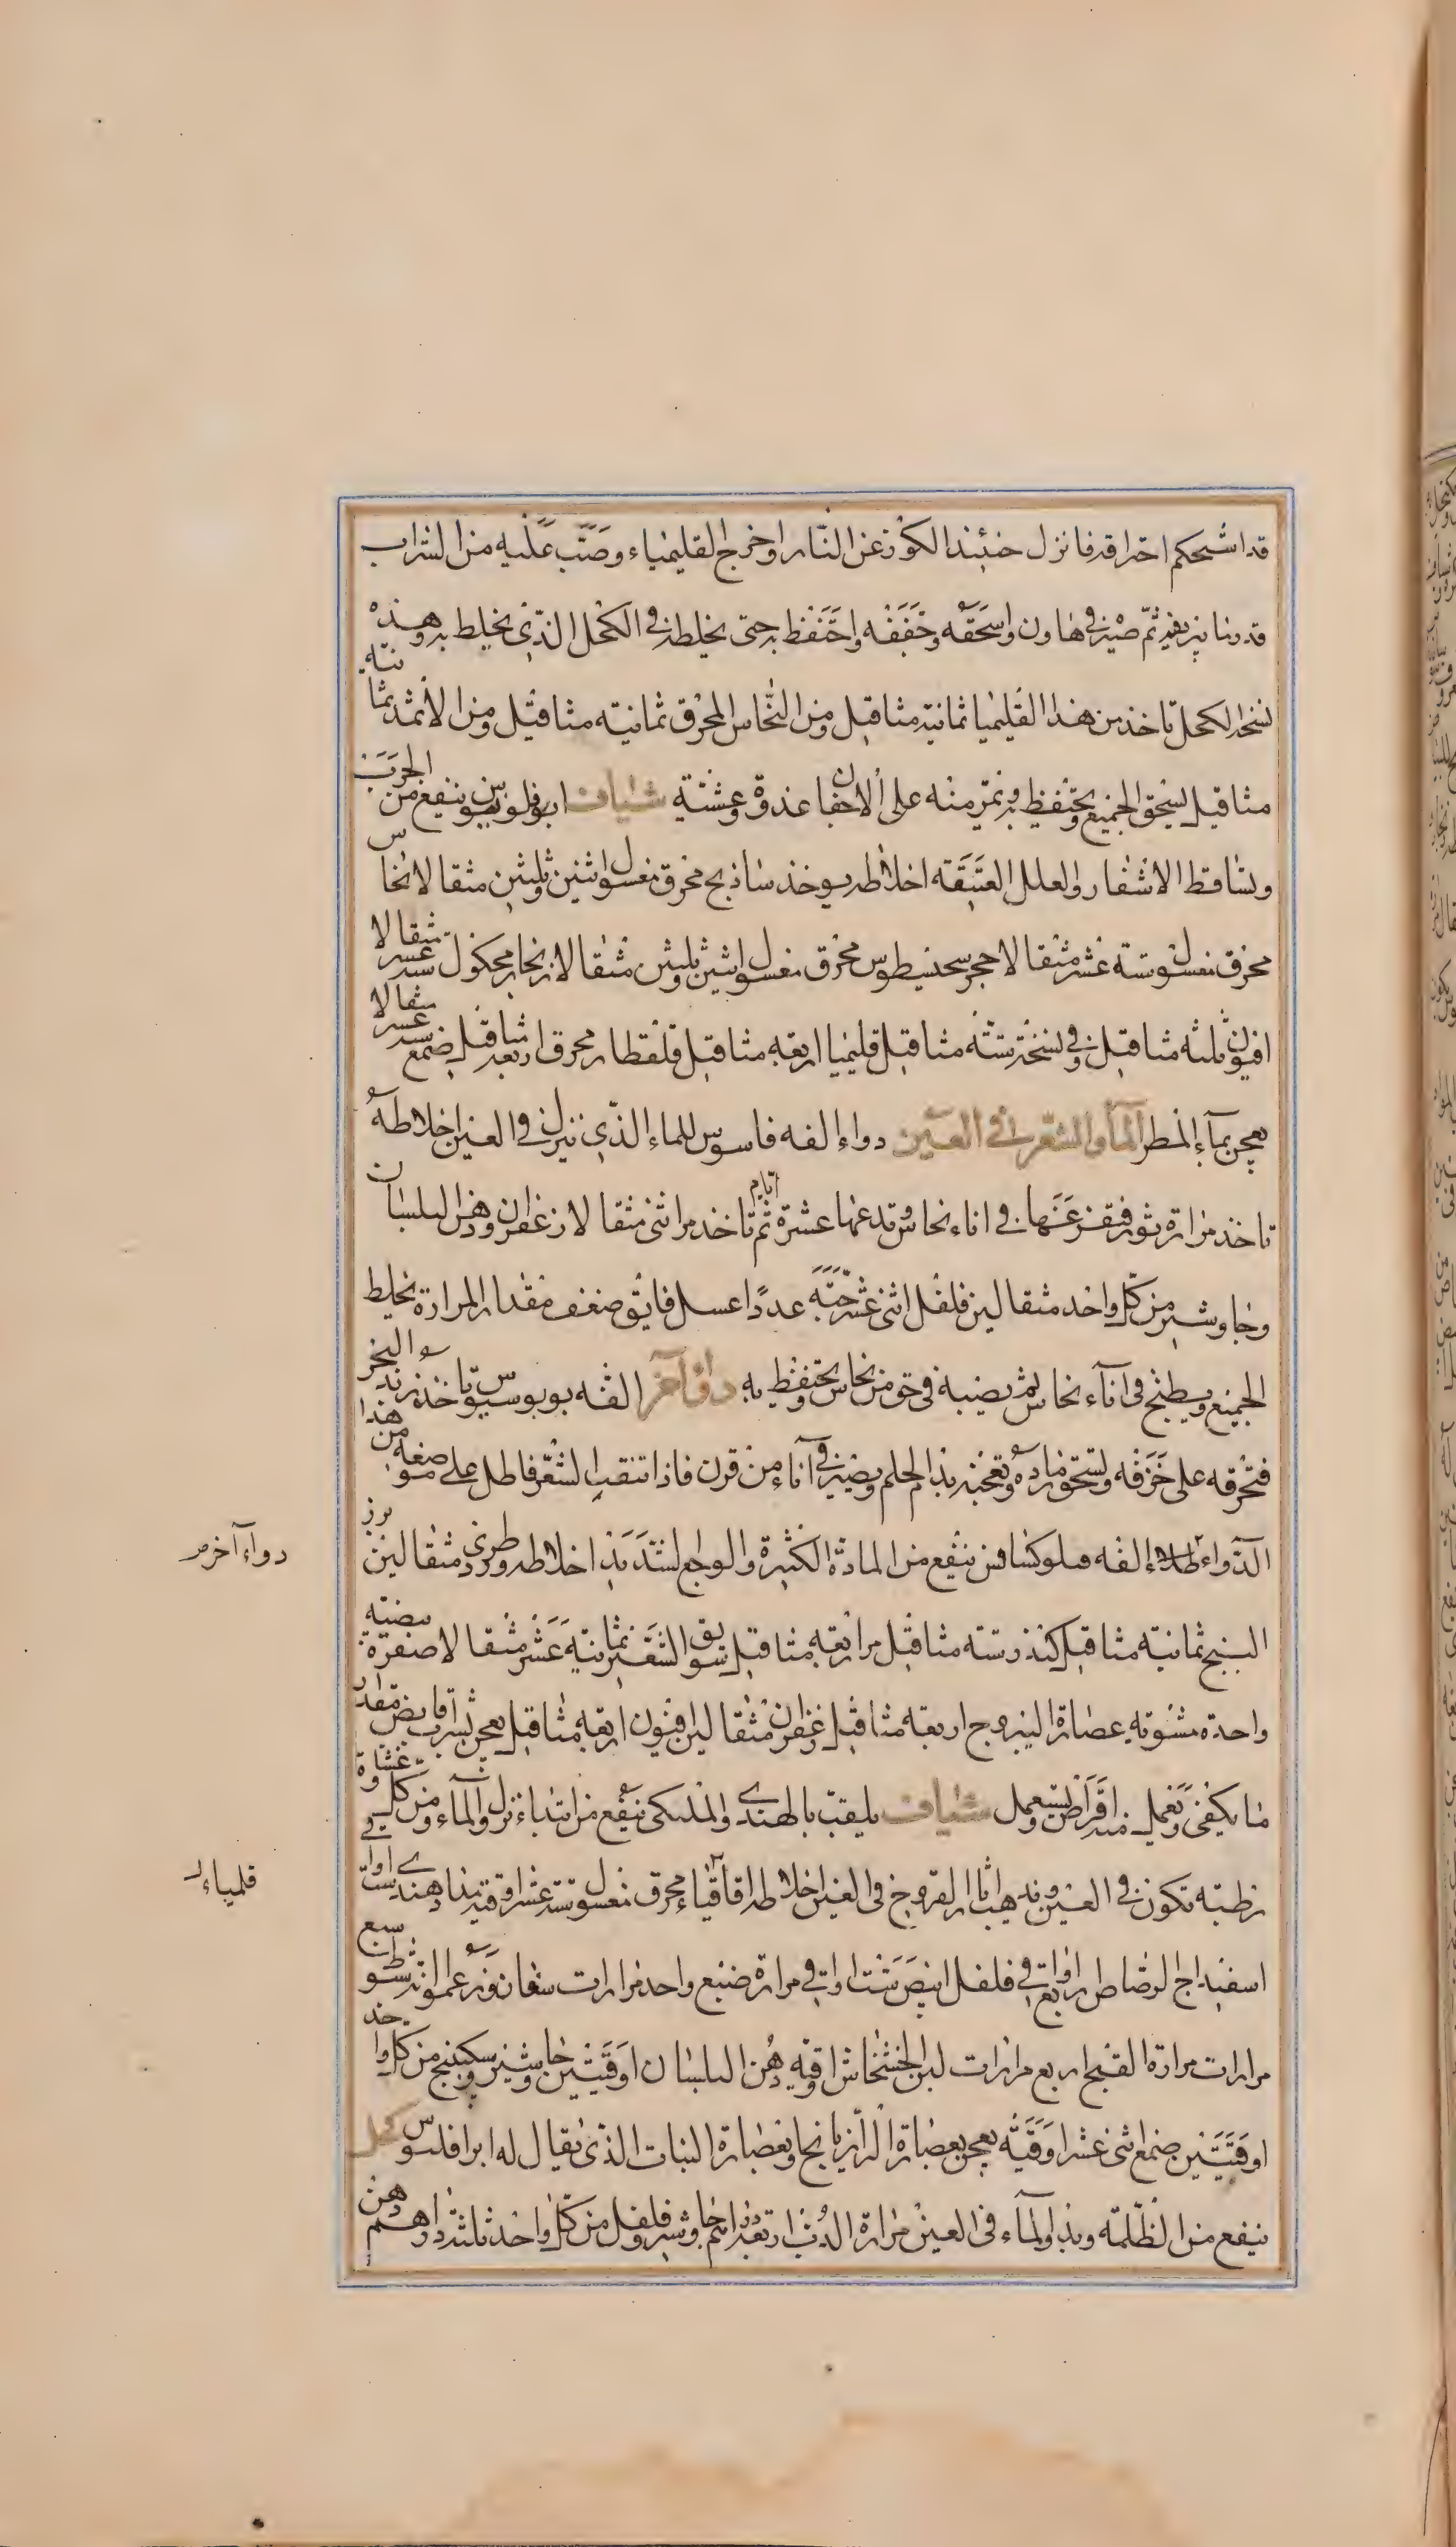 قد استحكم احتراقه فانزل حنيئذ الكوز عن النار واخرج القليمياء وصب عليه من الشراب
قدر ما يربيه ثم صيره في هاون واسحقه وجففه واحتفظ به حتى يخلطه في الكحل الذي يخلط به وهذه
نسخة الكحل تاخذ من هذا القليميا ثمانية مثاقيل ومن النحاس المحرق ثمانية مثاقيل ومن الاثمد ثمانية
مثاقيل يسحق الجميع ويحتفظ به ويمر منه على الاجفان غدوة وعشية شياف ينفع من الجرب
وتساقط الاشفار والعلل العتيقة اخلاطه يوخذ ساذنج محرق مغسول اثنين وثلثين مثقالا نحاس
محرق مغسول ستة عشر مثقالا حجر محرق مغسول اثنين وثلثين مثقالا زنجار محكوك ستة عشر مثقالا
افيون ثلثة مثاقيل وفي نسخة ستة مثاقيل قليميا اربعة مثاقيل قلقطار محرق اربعة مثاقيل صمغ ستة عشر مثقالا
يعجن بماء المطر الماء والشعر في العين دواء الفه فاسوس للماء الذي ينزل في العين اخلاطه
تاخذ مرارة ثور فتفرغها في اناء نحاس وتدعها عشرة ايام ثم تاخذ مرا ثنى مثقالا زعفران ودهن البلسان
وجاوشير من كل واحد مثقالين فلفل اثنى عشر حبة عددا عسل فايق ضعف مقدار المرارة يخلط
الجميع ويطبخ في اناء نحاس ثم يصب في حق من نحاس ويحتفظ به دواء آخر الفه تاخذ زبد البحر
فتحرقه على خزفه وتسحق رماده وتعجنه بدم الحلم ويصير في اناء من قرن فاذا تنقب الشعر فاطل على موضعه من هذا
الدواء طلاء الفه ينفع من المادة الكثيرة والوجع الشديد اخلاطه ورد طري مثقالين بزر
البنج ثمانية مثاقيل كندر ستة مثاقيل مر اربعة مثاقيل سويق الشعير ثمانية عشر مثقالا صفرة بيضة
واحدة مشوية عصارة اليبروج اربعة مثاقيل زعفران مثقالين افيون اربعة مثاقيل يعجن بشراب قابض مقدار
ما يكفي وتعمل منه اقراص ويستعمل شياف يلقب بالهندي والملكي ينفع من ابتداء نزول الماء ومن كل غشاوة
رطبة تكون في العين ويذهب اثار القروح في العين اخلاطه اقاقياء محرق مغسول ستة عشر اوقية مداد هندي ست اواقي
اسفيداج الرصاص اربع اواقي فلفل ابيض ست اواقي مرارة ضبع واحد مرارات سبع
مرارات مرارة القبج اربع مرارات لبن الخشخاش اوقية دهن البلسان اوقيتين جاوشير وسكبينج من كل واحد
اوقيتين صمغ اثنى عشر اوقية يعجن بعصارة الرازيانج او بعصارة النبات الذي يقال له ابرافليوس كحل
ينفع من الظلمة وبدو الماء في العين مرارة الدب اربعة دراهم جاوشير وفلفل من كل واحد ثلثة دراهم دهن
دواء آخر
قلمياء